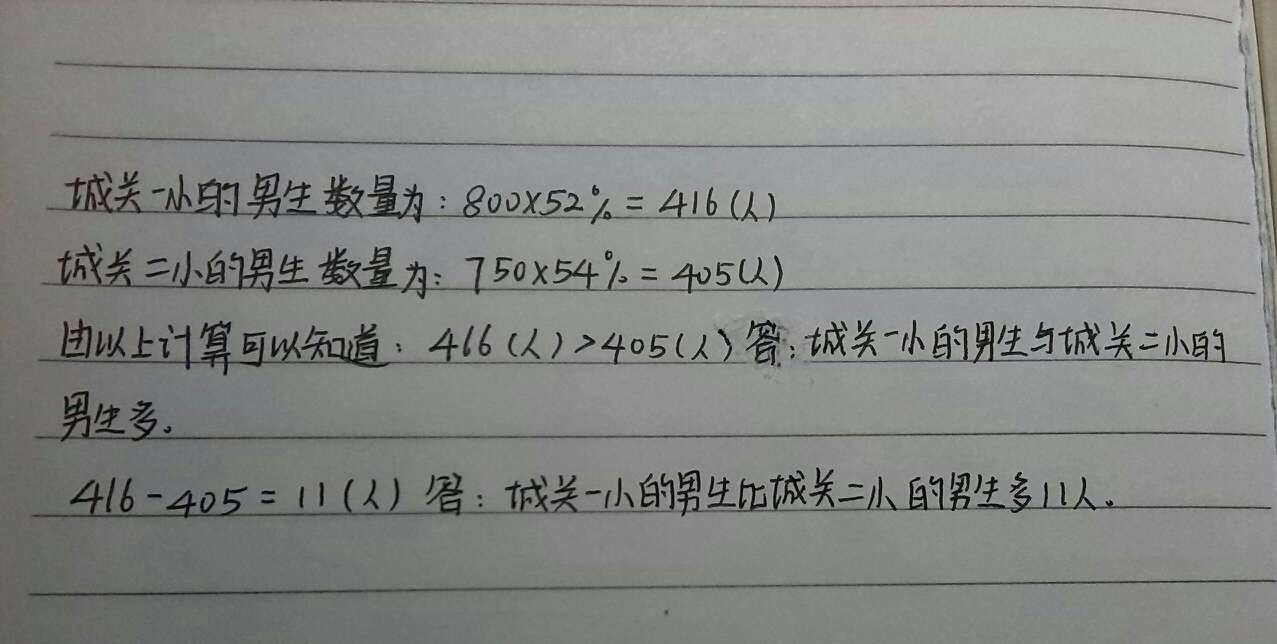 城关一小的男生数量为:800×52%=416(人)
城关二小的男生数量为:750×54%=405(人)
由以上计算可以知道:416(人)>405(人)答:城关一小的男生与城关二小的
男生多。
416-405=11(人)答:城关一小的男生比城关二小的男生多11人。